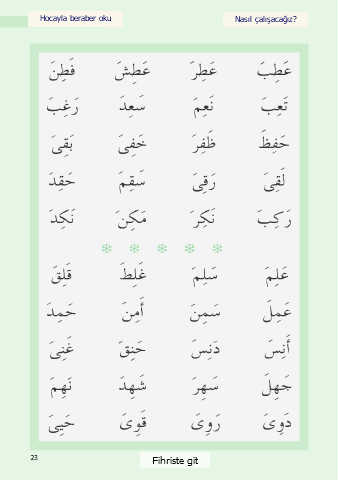 Hocayla beraber oku
Nasıl çalışacağız?
عَطِبَ عَطِرَ عَطِشَ فَطِنَ
تَعِبَ نَعِمَ سَعِدَ رَغِبَ
حَفِظَ ظَفِرَ خَفِىَ بَقِىَ
لَقِىَ رَقِىَ سَقِمَ حَقِدَ
رَكِبَ نَكِرَ مَكِنَ نَكِدَ
عَلِمَ سَلِمَ غَلِطَ قَلِقَ
عَمِلَ سَمِنَ أَمِنَ حَمِدَ
أَنِسَ دَنِسَ حَنِقَ غَنِىَ
جَهِلَ سَهِرَ شَهِدَ نَهِمَ
دَوِىَ رَوِىَ قَوِىَ حَيِىَ
23
Fihriste git